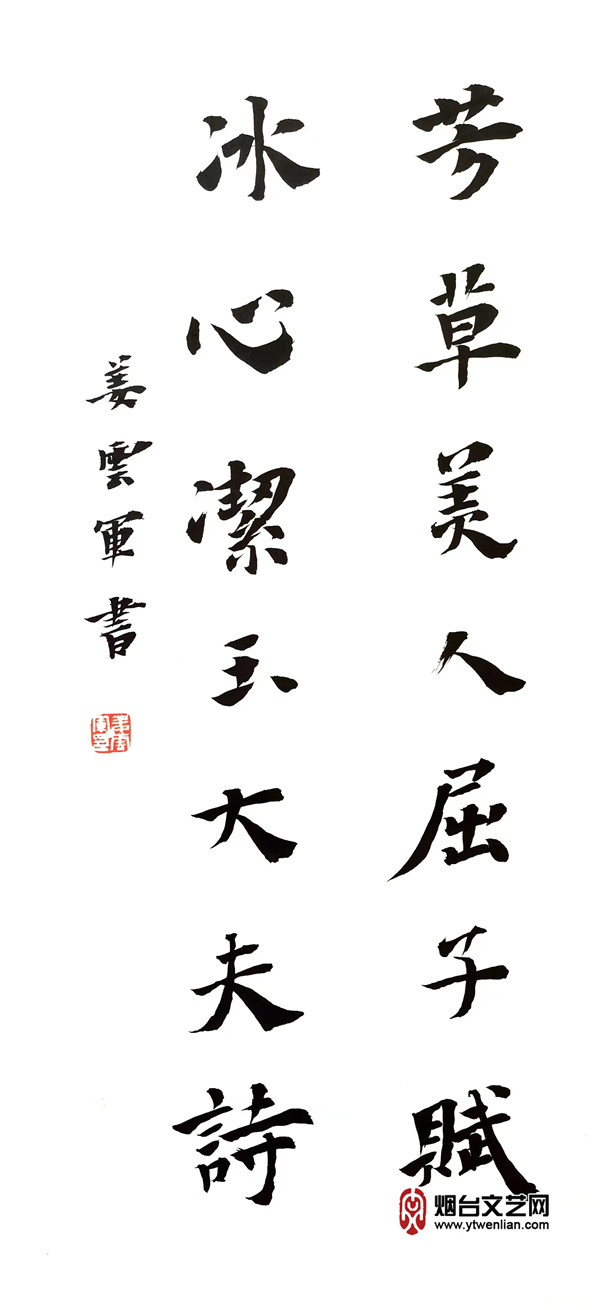 芳草美人屈子賦
冰心潔玉大夫詩
姜雲軍書
烟台文艺网
www.ytwenlian.com